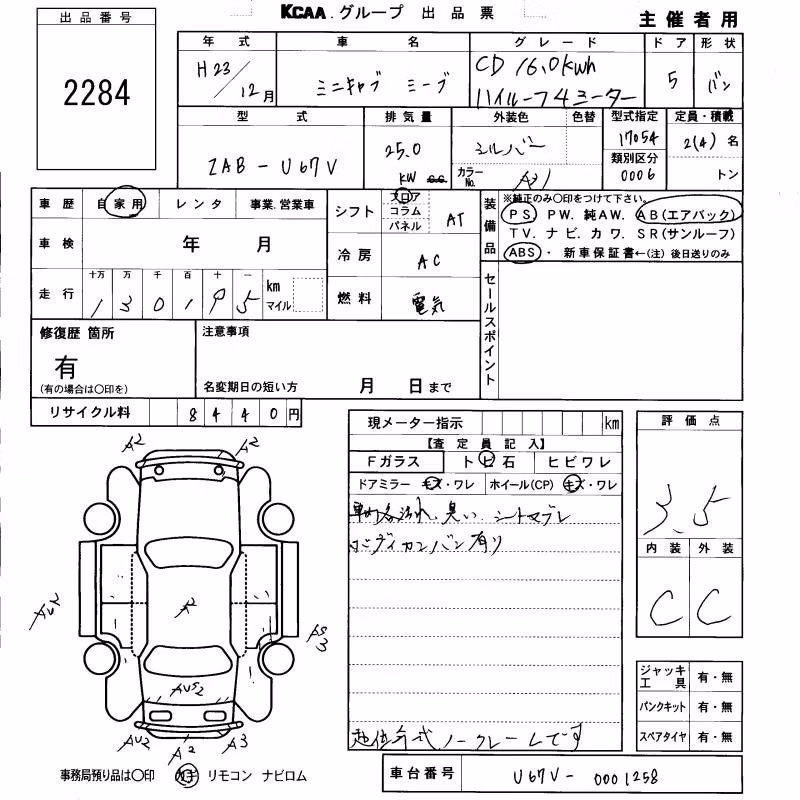 出品番号
KCAA.グループ 出品票
主催者用
2284
年式 車名 グレード ドア 形状
H23/12月 ミニキャブ ミーブ CD 16.0kwh ハイルーフ4シーター 5 バン
型式 排気量 外装色 色替 型式指定 定員・積載
ZAB-U67V 25.0 KW シルバー カラーNo. A31 17054 類別区分 0006 2(4)名 トン
車歴 自家用 レンタ 事業.営業車
シフト フロア コラム パネル AT
装備品 ※純正のみ〇印をつけて下さい。
PS PW. 純AW. AB(エアバック)
TV. ナビ. カワ. SR(サンルーフ)
ABS・新車保証書←(注)後日送りのみ
車検 年 月
冷房 AC
走行 十万 万 千 百 十 一 km マイル
130195
燃料 電気
セールスポイント
修復歴 箇所
有
(有の場合は〇印を)
注意事項
名変期日の短い方 月 日まで
リサイクル料 8440円
現メーター指示 km
【査定員記入】
Fガラス トビ石 ヒビワレ
ドアミラー キズ・ワレ ホイール(CP) キズ・ワレ
車内汚れ、臭い、シートヤブレ
ボディカンバン有り
低年式ノークレームです
評価点
3.5
内装 外装
C C
ジャッキ工具 有・無
パンクキット 有・無
スペアタイヤ 有・無
A2 A2
AU2 A2 AS3
AUS2
AU2 A2 A3
事務局預り品は〇印 カギ リモコン ナビロム
車台番号 U67V-0001258